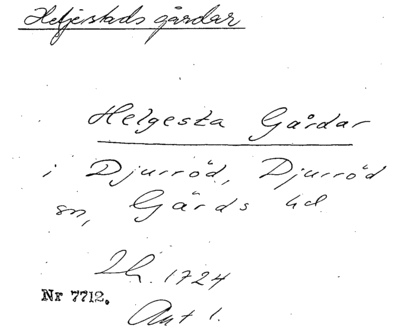 Helgestads gårdar
Helgesta Gårdar
i Djurröd, Djurröd
sn, Gärds hd
Lh. 1724
Nr 7712.
Ant 1.